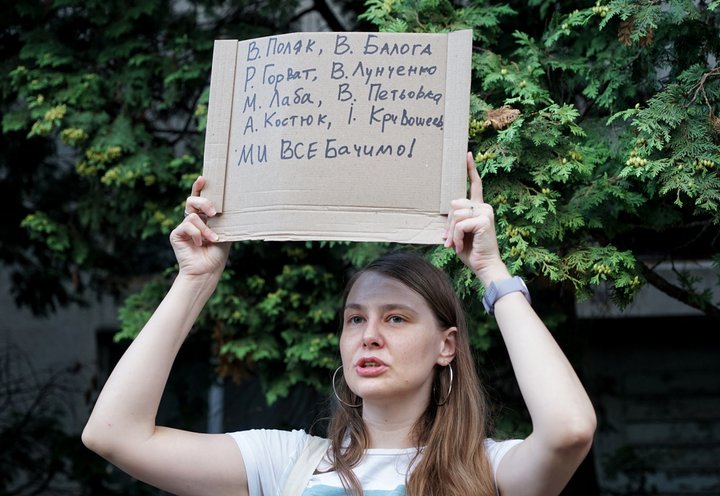 В. Поляк, В. Балога
Р. Горват, В. Лунченко
М. Лаба, В. Петьовка
А. Костюк, І. Кривошеєв
МИ ВСЕ БАЧИМО!